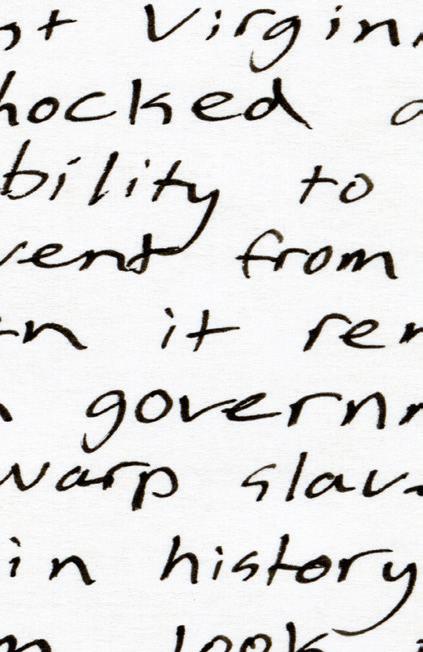 nt Virgin
hocked a
bility to
vent from
tn it rem
n governm
warp slav
in history
m look